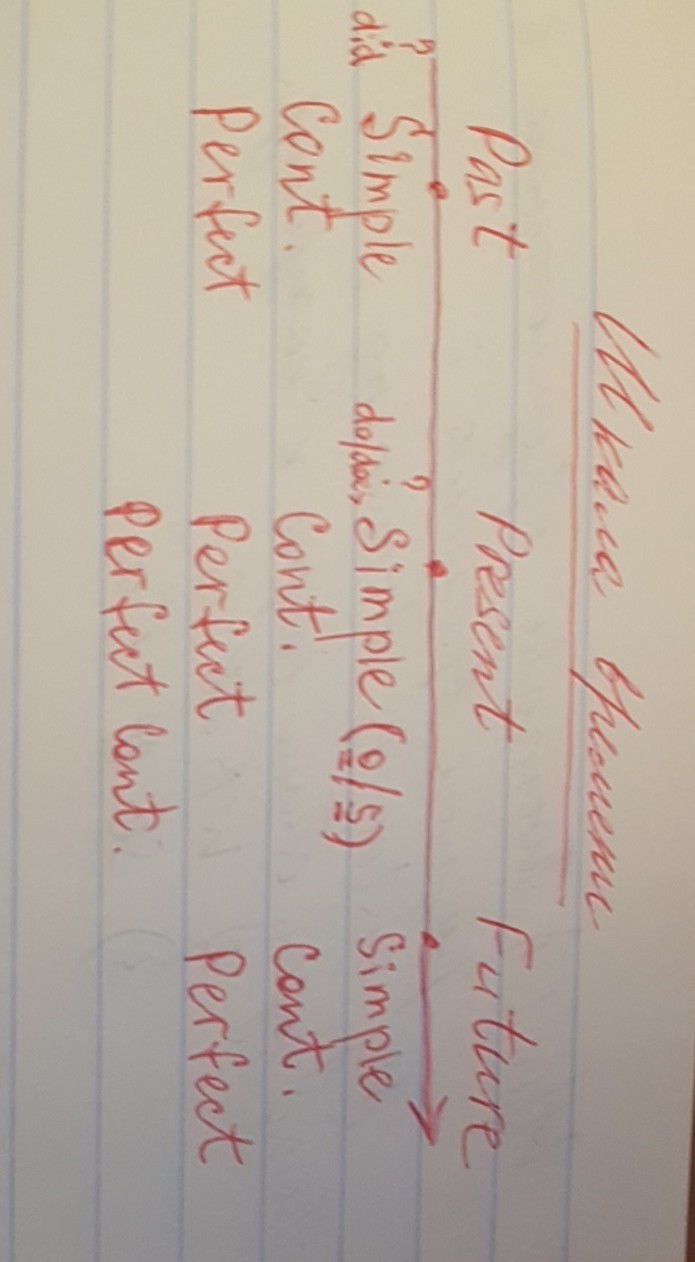 Шкала времени
Past Present Future
? ?
did Simple do/does Simple (0/s) Simple
Cont. Cont. Cont.
Perfect Perfect Perfect
Perfect Cont.